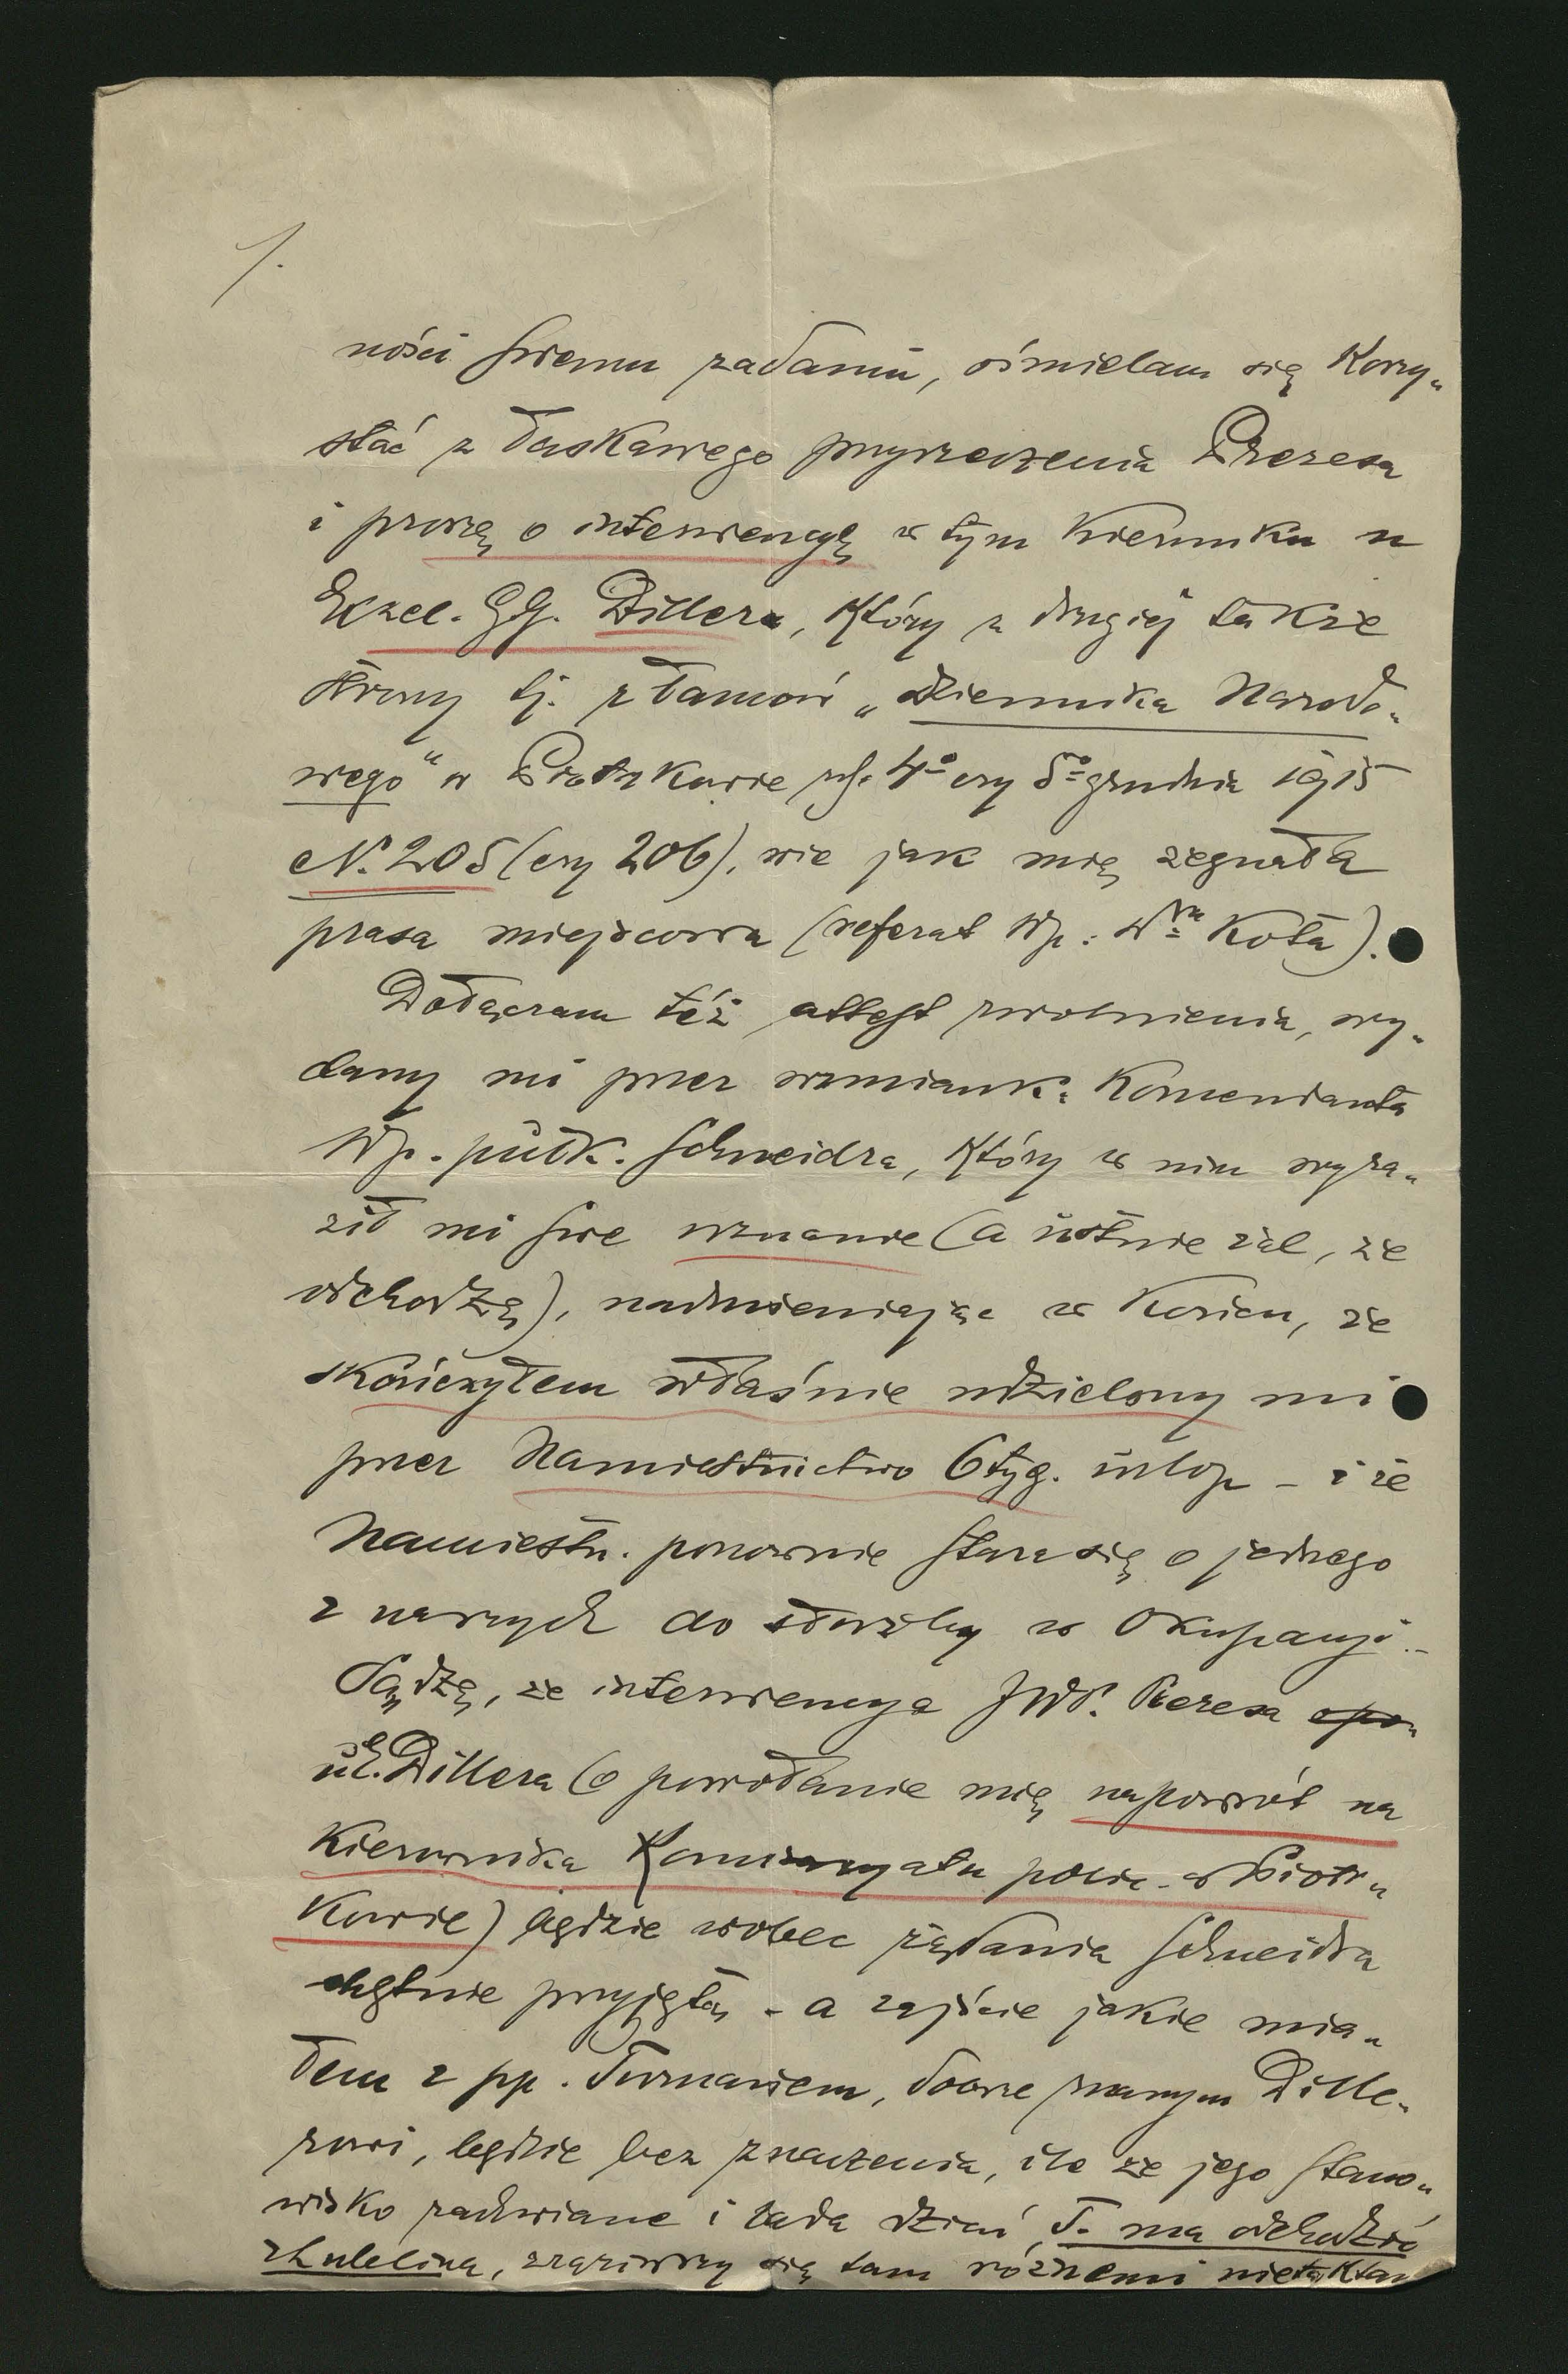 1.
ności swemu zadaniu, ośmielam się korzy„
stać z łaskawego przyrzeczenia Prezesa
i proszę o interwencyę w tym kierunku u
Exzel. GG. Dillera, który z drugiej także
strony tj. z łamów „Dziennika Narodo„
wego" w Piotrkowie z 4º czy 5º grudnia 1915
N. 205 (czy 206), wie jak mię żegnała
prasa miejscowa (referat Wp: Dra Kota).
Dołączam też attest zwolnienia, wy„
dany mi przez wzmiank: Komendanta
Wp. pułk. Schneidra, który w nim wyra„
ził mi swe uznanie (a ustnie żal, że
odchodzę), nadmieniając w końcu, że
skończyłem właśnie udzielony mi
przez Namiestnictwo 6 tyg. urlop - i że
Namiestn. ponownie stara się o jednego
z naszych do służby w Okupacyi.-
Sądzę, że interwencya JWP. Prezesa
u E. Dillera (o powołanie mię napowrót na
kierownika Komisaryatu polic. w Piotr„
kowie) będzie wobec żądania Schneidra
chętnie przyjętą - a zajście jakie mia„
łem z pp. Turnauem, dobrze znanym Dille„
rowi, będzie bez znaczenia, ile że jego stano„
wisko zachwiane i lada dzień T. ma odchodzić
z Lublina, zraziwszy się tam różnemi nietaktam